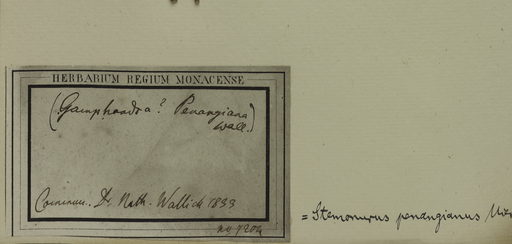 HERBARIUM REGIUM MONACENSE
(Gamphandra? Penangiana
Wall.)
Commun. Dr. Nath. Wallich 1833
no 7204
= Stemonurus penangianus